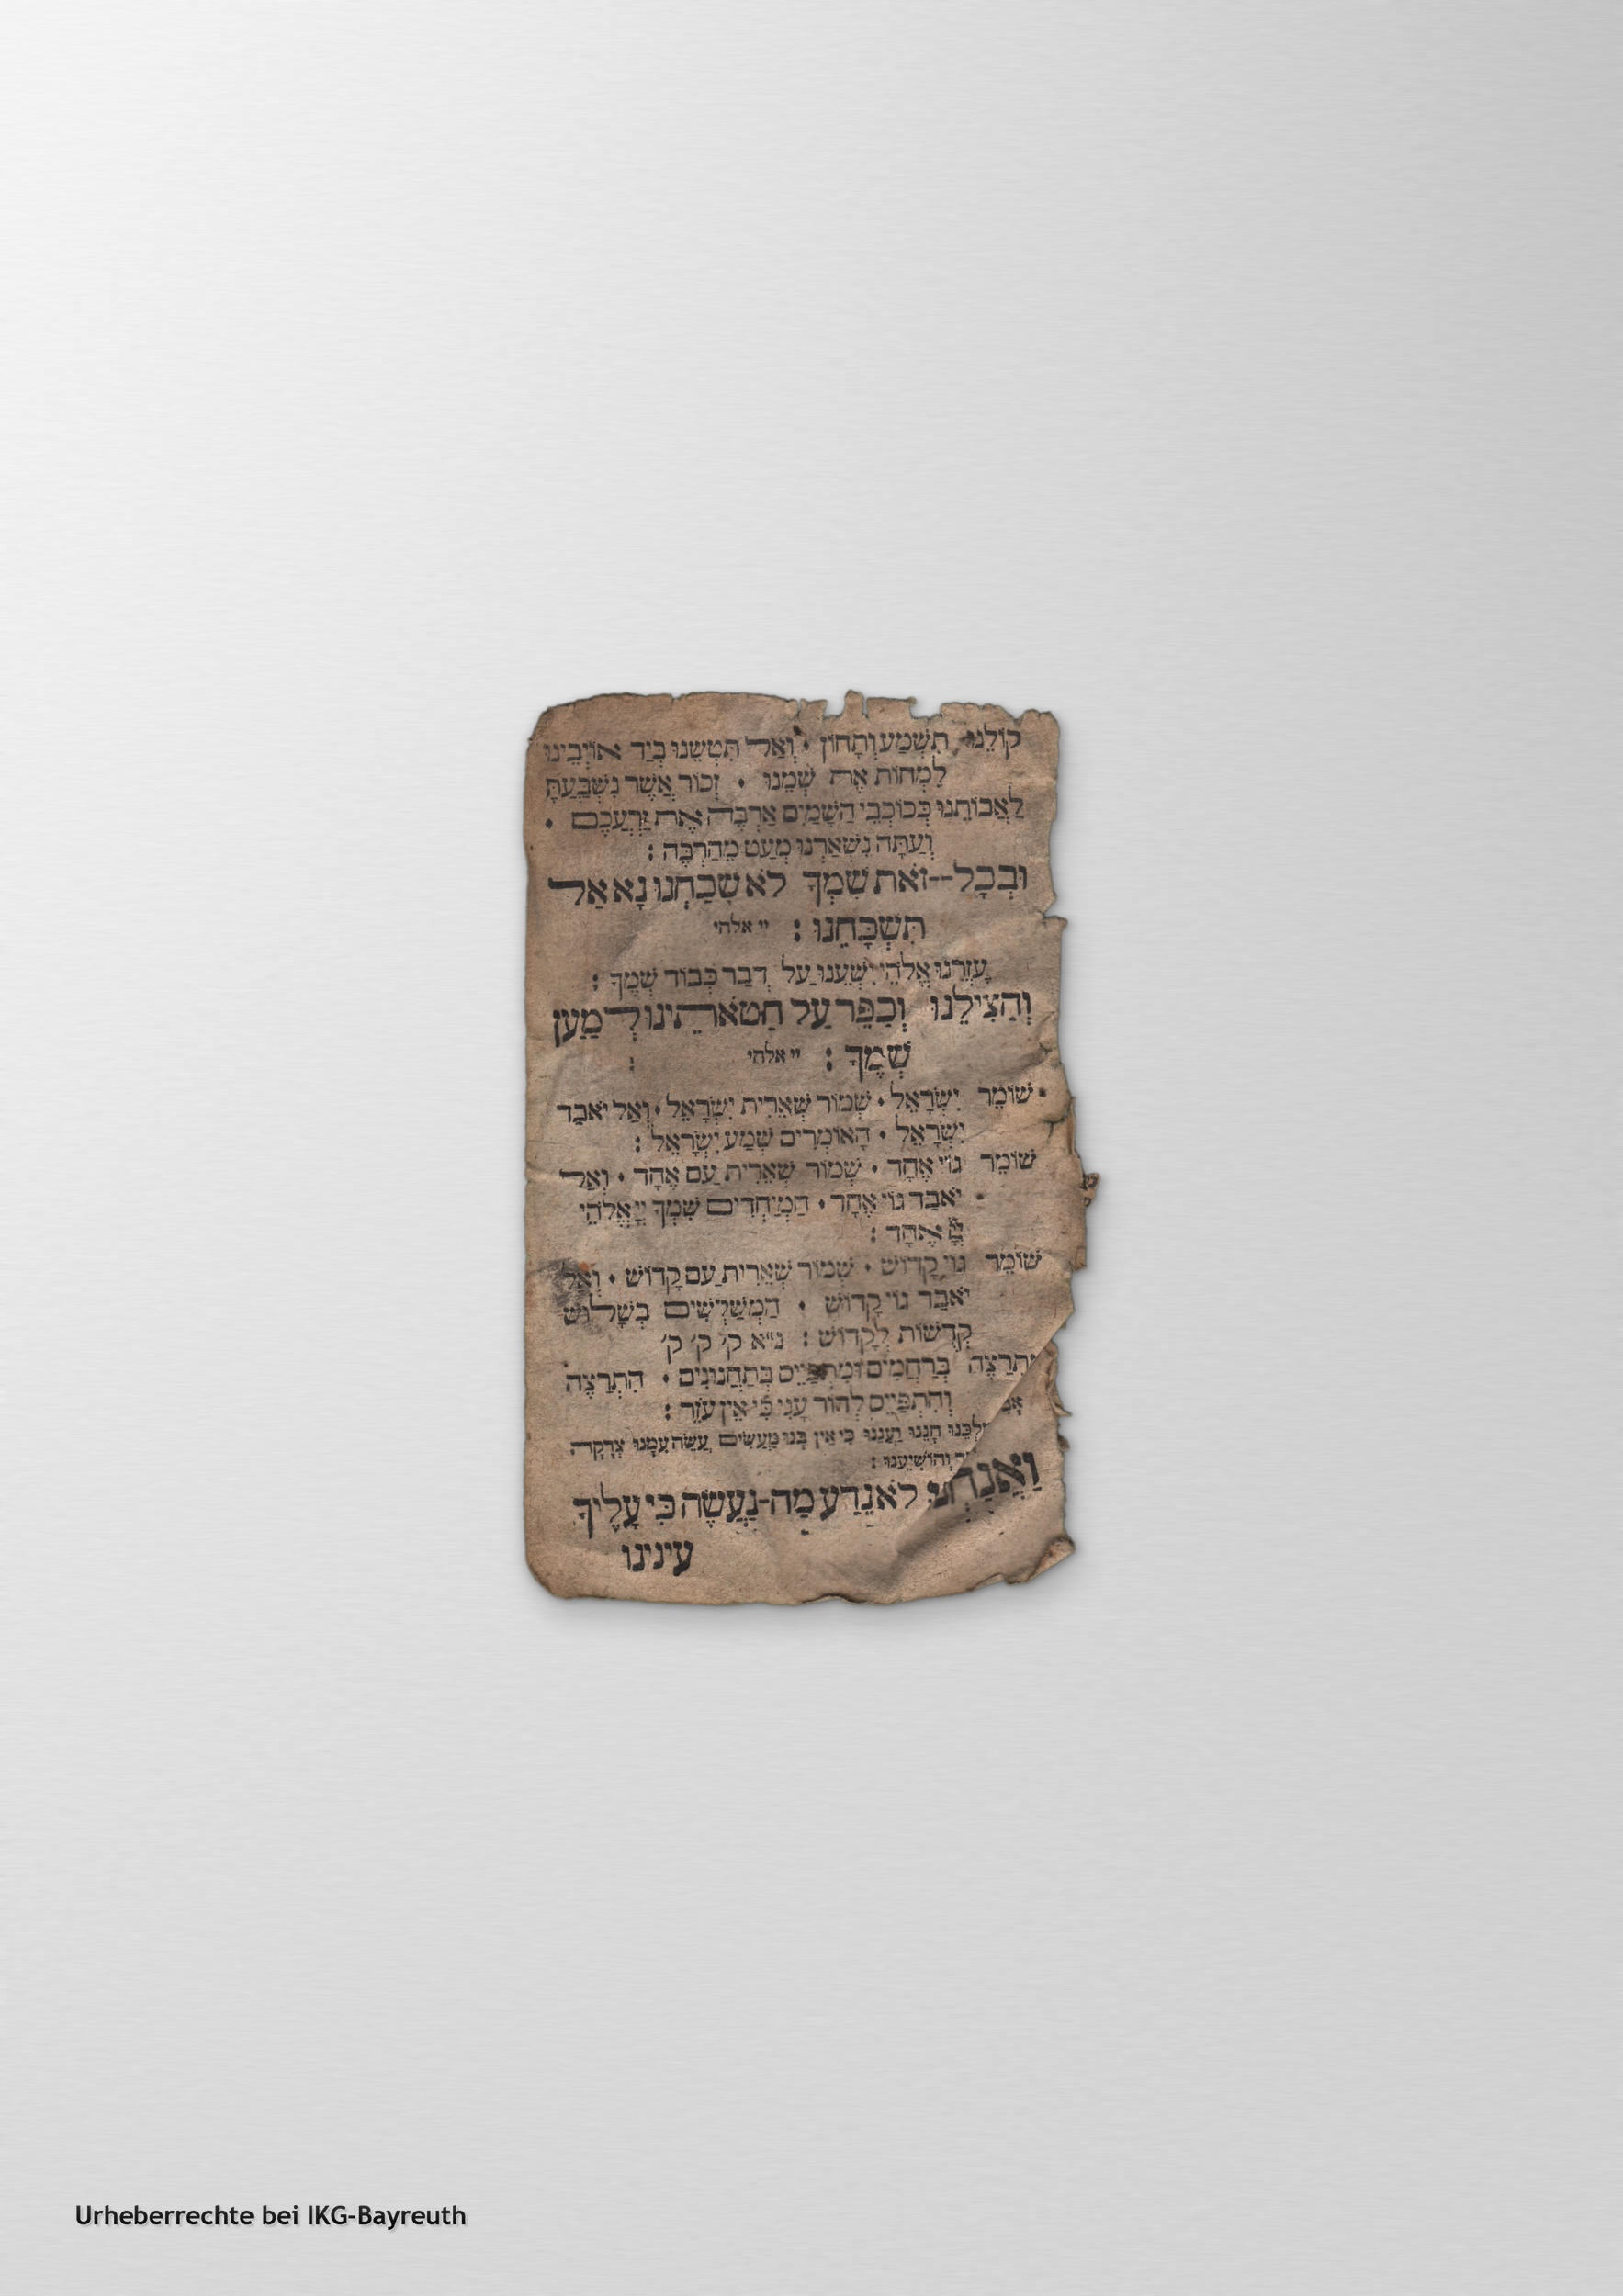 קוֹלֵנוּ תִשְׁמַע וְתָחוֹן • וְאַל תִּטְשֵׁנוּ בְּיַד אוֹיְבֵינוּ
לִמְחוֹת אֶת שְׁמֵנוּ • זְכוֹר אֲשֶׁר נִשְׁבַּעְתָּ
לַאֲבוֹתֵנוּ כְּכוֹכְבֵי הַשָּׁמַיִם אַרְבֶּה אֶת זַרְעֲכֶם •
וְעַתָּה נִשְׁאַרְנוּ מְעַט מֵהַרְבֵּה :
וּבְכָל--זֹאת שִׁמְךָ לֹא שָׁכַחְנוּ נָא אַל
תִּשְׁכָּחֵנוּ : יי אלהי
עָזְרֵנוּ אֱלֹהֵי יִשְׁעֵנוּ עַל דְּבַר כְּבוֹד שְׁמֶךָ :
וְהַצִּילֵנוּ וְכַפֵּר עַל חַטֹּאתֵינוּ לְמַעַן
שְׁמֶךָ : יי אלהי :
שׁוֹמֵר יִשְׂרָאֵל • שְׁמוֹר שְׁאֵרִית יִשְׂרָאֵל • וְאַל יֹאבַד
יִשְׂרָאֵל • הָאוֹמְרִים שְׁמַע יִשְׂרָאֵל :
שׁוֹמֵר גּוֹי אֶחָד • שְׁמוֹר שְׁאֵרִית עַם אֶחָד • וְאַל
יֹאבַד גּוֹי אֶחָד • הַמְיַחֲדִים שִׁמְךָ יְיָ אֱלֹהֵי
יְיָ אֶחָד :
שׁוֹמֵר גּוֹי קָדוֹשׁ • שְׁמוֹר שְׁאֵרִית עַם קָדוֹשׁ • וְאַל
יֹאבַד גּוֹי קָדוֹשׁ • הַמְשַׁלְּשִׁים בְּשָׁלוֹשׁ
קְדֻשׁוֹת לְקָדוֹשׁ : נ״א ק׳ ק׳ ק׳
מִתְרַצֶּה בְּרַחֲמִים וּמִתְפַּיֵּס בְּתַחֲנוּנִים • הִתְרַצֶּה
וְהִתְפַּיֵּס לְדוֹר עָנִי כִּי אֵין עוֹזֵר :
חָנֵּנוּ וַעֲנֵנוּ כִּי אֵין בָּנוּ מַעֲשִׂים עֲשֵׂה עִמָּנוּ צְדָקָה
וְהוֹשִׁיעֵנוּ :
וַאֲנַחְנוּ לֹא נֵדַע מַה-נַּעֲשֶׂה כִּי עָלֶיךָ
עינינו
Urheberrechte bei IKG-Bayreuth